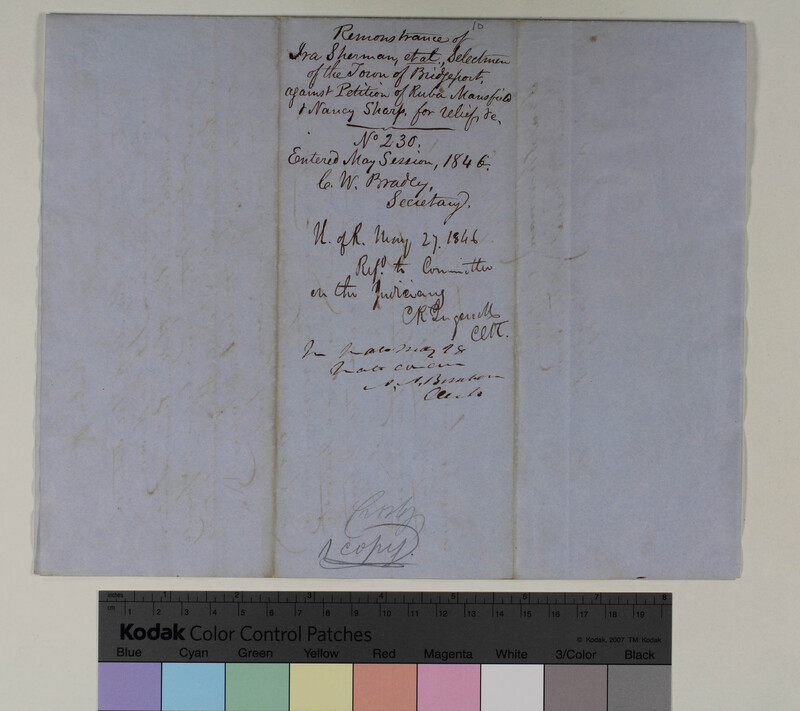 10
Remonstrance of
Ira Sherman, et al, Selectmen
of the Town of Bridgeport,
against Petition of Ruba Mansfield
& Nancy Sharp, for relief, &c.
No 230.
Entered May Session, 1846.
C. W. Bradley,
Secretary.
H. of R. May 27. 1846
Refd. to Committee
on the Judiciary
CR Ingersoll
Clk.
In
Clerk
copy.
inches 1 2 3 4 5 6 7 8
cm 1 2 3 4 5 6 7 8 9 10 11 12 13 14 15 16 17 18 19
Kodak Color Control Patches
© Kodak, 2007 TM: Kodak
Blue Cyan Green Yellow Red Magenta White 3/Color Black